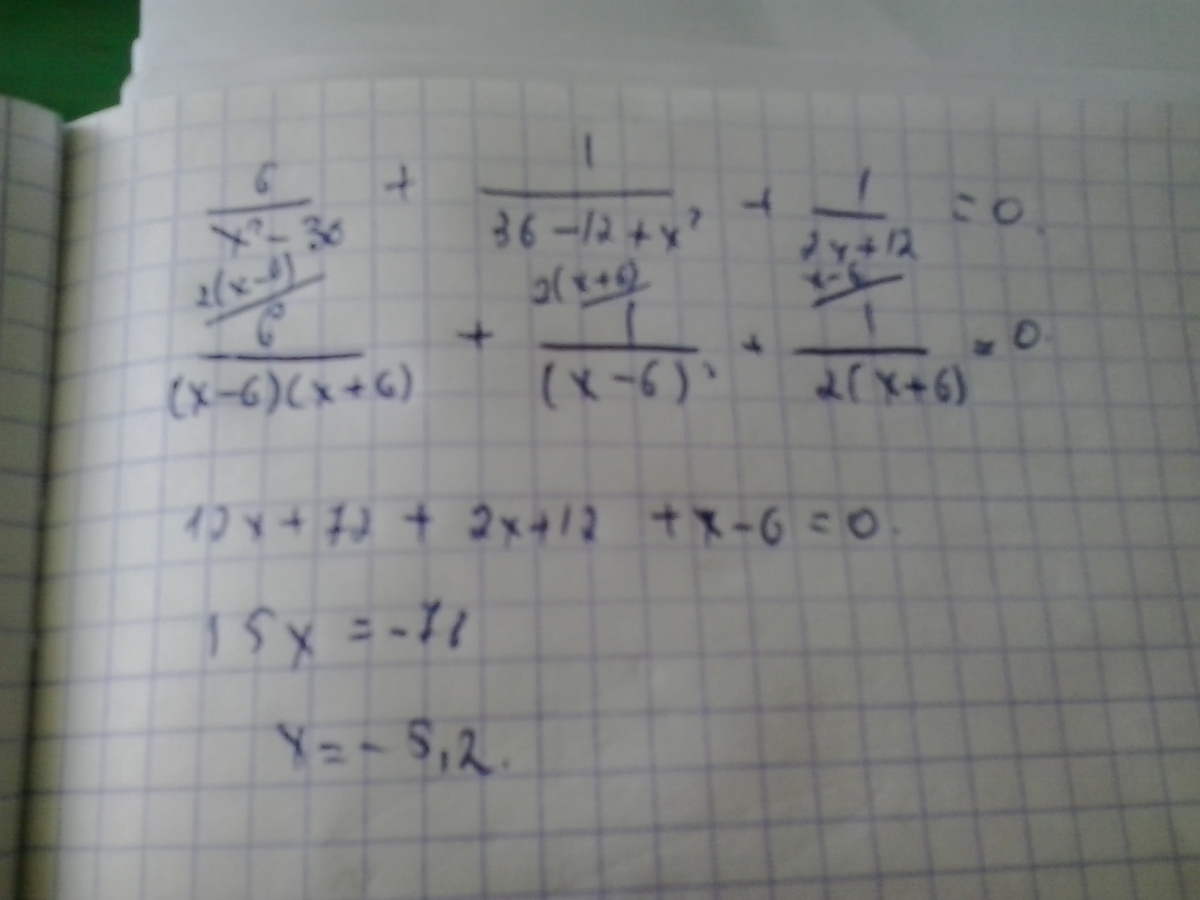 6/(x² - 36) + 1/(36 - 12 + x²) + 1/(2x + 12) = 0.
2(x-6) 2(x+6) x-6
6/((x-6)(x+6)) + 1/(x-6)² + 1/(2(x+6)) = 0
12x + 72 + 2x + 12 + x - 6 = 0.
15x = -78
x = - 5,2.